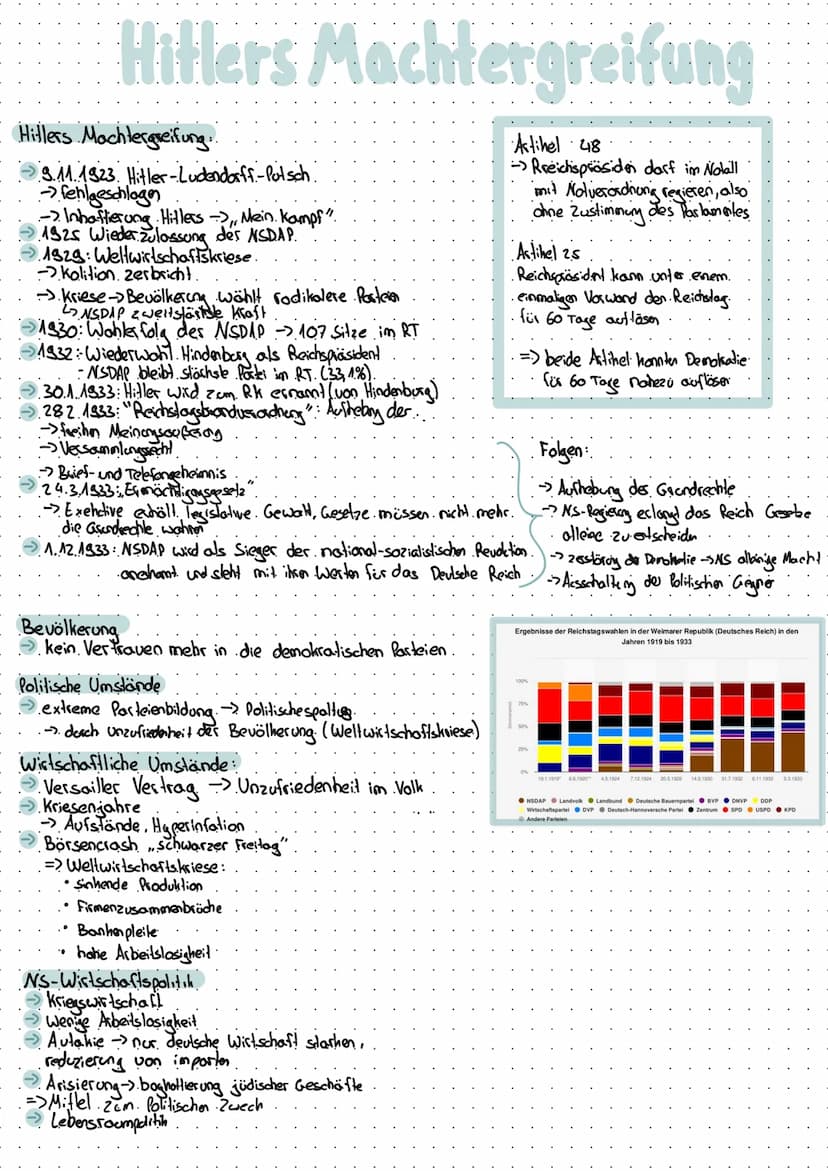 Hitlers Machtergreifung
Hitlers Machtergreifung:
→ 9.11.1923 Hitler-Ludendorff-Putsch
→ fehlgeschlagen
→ Inhaftierung Hitlers → „Mein Kampf"
→ 1925 Wiederzulassung der NSDAP
→ 1929: Weltwirtschaftskriese
→ Kolition zerbricht
→ Kriese → Bevölkerung wählt radikalere Parteien
↳ NSDAP zweitstärkste Kraft
→ 1930: Wahlerfolg der NSDAP → 107 Sitze im RT
→ 1932: Wiederwahl Hindenburg als Reichspräsident
- NSDAP bleibt stärchste Partei im RT (33,1%)
→ 30.1.1933: Hitler wird zum RK ernannt (von Hindenburg)
→ 28.2.1933: "Reichstagsbrandverordnung": Aufhebung der
→ freihn Meinungsäußerung
→ Versammlungsrecht
→ Brief- und Telefongeheimnis
→ 24.3.1933: „Ermächtigungsgesetz"
→ Exekutive erhält legislative Gewalt, Gesetze müssen nicht mehr
die Grundrechte wahren
→ 1.12.1933: NSDAP wird als Sieger der national-sozialistischen Revolution
anerkannt und steht mit ihren Werten für das Deutsche Reich
Artikel 48
→ Rreichspräsiden darf im Notall
mit Notverordnung regieren, also
ohne Zustimmung des Parlamentes
Artikel 25
Reichspräsident kann unter einem
einmaligen Vorwand den Reichstag
für 60 Tage auflösen
=> beide Artikel konnten Demokratie
für 60 Tage nahezu auflösen
Folgen:
→ Aufhebung der Grundrechte
→ NS-Regierung erlangt das Reich Gesetze
alleine zu entscheiden
→ zerstörung der Demokratie → NS alleinige Macht
→ Ausschaltung der Politischen Gegner
Bevölkerung
→ kein Vertrauen mehr in die demokratischen Parteien
Politische Umstände
→ extreme Parteienbildung → Politischespaltung
→ durch unzufriedenheit der Bevölkerung (Weltwirtschaftskriese)
Wirtschaftliche Umstände:
→ Versailler Vertrag → Unzufriedenheit im Volk
→ Kriesenjahre
→ Aufstände, Hyperinfation
→ Börsencrash „schwarzer Freitag"
=> Weltwirtschaftskriese:
• sinkende Produktion
• Firmenzusammenbrüche
• Bankenpleite
• hohe Arbeitslosigkeit
NS-Wirtschaftspolitik
→ Kriegswirtschaft
→ Wenige Arbeitslosigkeit
→ Autakie → nur deutsche Wirtschaft stärken,
reduzierung von importen
→ Arisierung → boykottierung jüdischer Geschäfte
=> Mittel zum Politischen Zweck
→ Lebensraumpolitik
Ergebnisse der Reichstagswahlen in der Weimarer Republik (Deutsches Reich) in den
Jahren 1919 bis 1933
100%
75%
50%
25%
0%
Stimmenanteil
19.1.1919* 6.6.1920** 4.5.1924 7.12.1924 20.5.1928 14.9.1930 31.7.1932 6.11.1932 5.3.1933
NSDAP Landvolk Landbund Deutsche Bauernpartei BVP DNVP DDP
Wirtschaftspartei DVP Deutsch-Hannoversche Partei Zentrum SPD USPD KPD
Andere Parteien